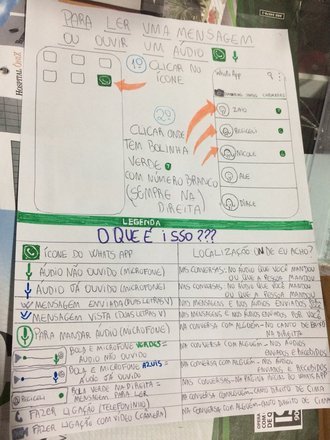 PARA LER UMA MENSAGEM
OU OUVIR UM ÁUDIO
1º CLICAR NO
ÍCONE
WhatsApp
CONVERSAS STATUS CHAMADAS
ZATO
PRISCILA
NICOLE
ALE
DIALE
2º
CLICAR ONDE
TEM BOLINHA
VERDE
COM NÚMERO BRANCO
(SEMPRE NA
DIREITA)
LEGENDA
O QUE É ISSO???
LOCALIZAÇÃO ONDE EU ACHO?
ÍCONE DO WHATSAPP
ÁUDIO NÃO OUVIDO (MICROFONE)
NAS CONVERSAS: NO ÁUDIO QUE VOCÊ MANDOU
OU QUE A PESSOA MANDOU
ÁUDIO JÁ OUVIDO (MICROFONE)
NAS CONVERSAS: NO ÁUDIO QUE VOCÊ MANDOU
OU QUE A PESSOA MANDOU
MENSAGEM ENVIADA (DUAS LETRAS V)
NAS MENSAGENS E NOS ÁUDIOS ENVIADOS POR VOCÊ
MENSAGEM VISTA (DUAS LETRAS V)
NAS MENSAGENS E NOS ÁUDIOS ENVIADOS POR VOCÊ
PARA MANDAR ÁUDIO (MICROFONE)
NA CONVERSA COM ALGUÉM - NO CANTO DE BAIXO
NA DIREITA
BOLA E MICROFONE VERDES =
ÁUDIO NÃO OUVIDO
NA CONVERSA COM ALGUÉM - NOS ÁUDIOS
ENVIADOS E RECEBIDOS
BOLA E MICROFONE AZUIS =
ÁUDIO JÁ OUVIDO
NA CONVERSA COM ALGUÉM - NOS ÁUDIOS
ENVIADOS E RECEBIDOS
PRISCILA
BOLA VERDE NA DIREITA =
MENSAGEM PARA LER
NAS CONVERSAS - NA PÁGINA INICIAL DO WHATSAPP
FAZER LIGAÇÃO (TELEFONINHO)
NA CONVERSA COM ALGUÉM - CANTO DIREITO DE CIMA
FAZER LIGAÇÃO COM VÍDEO (CÂMERA)
NA CONVERSA COM ALGUÉM - CANTO DIREITO DE CIMA
HOSPITAL